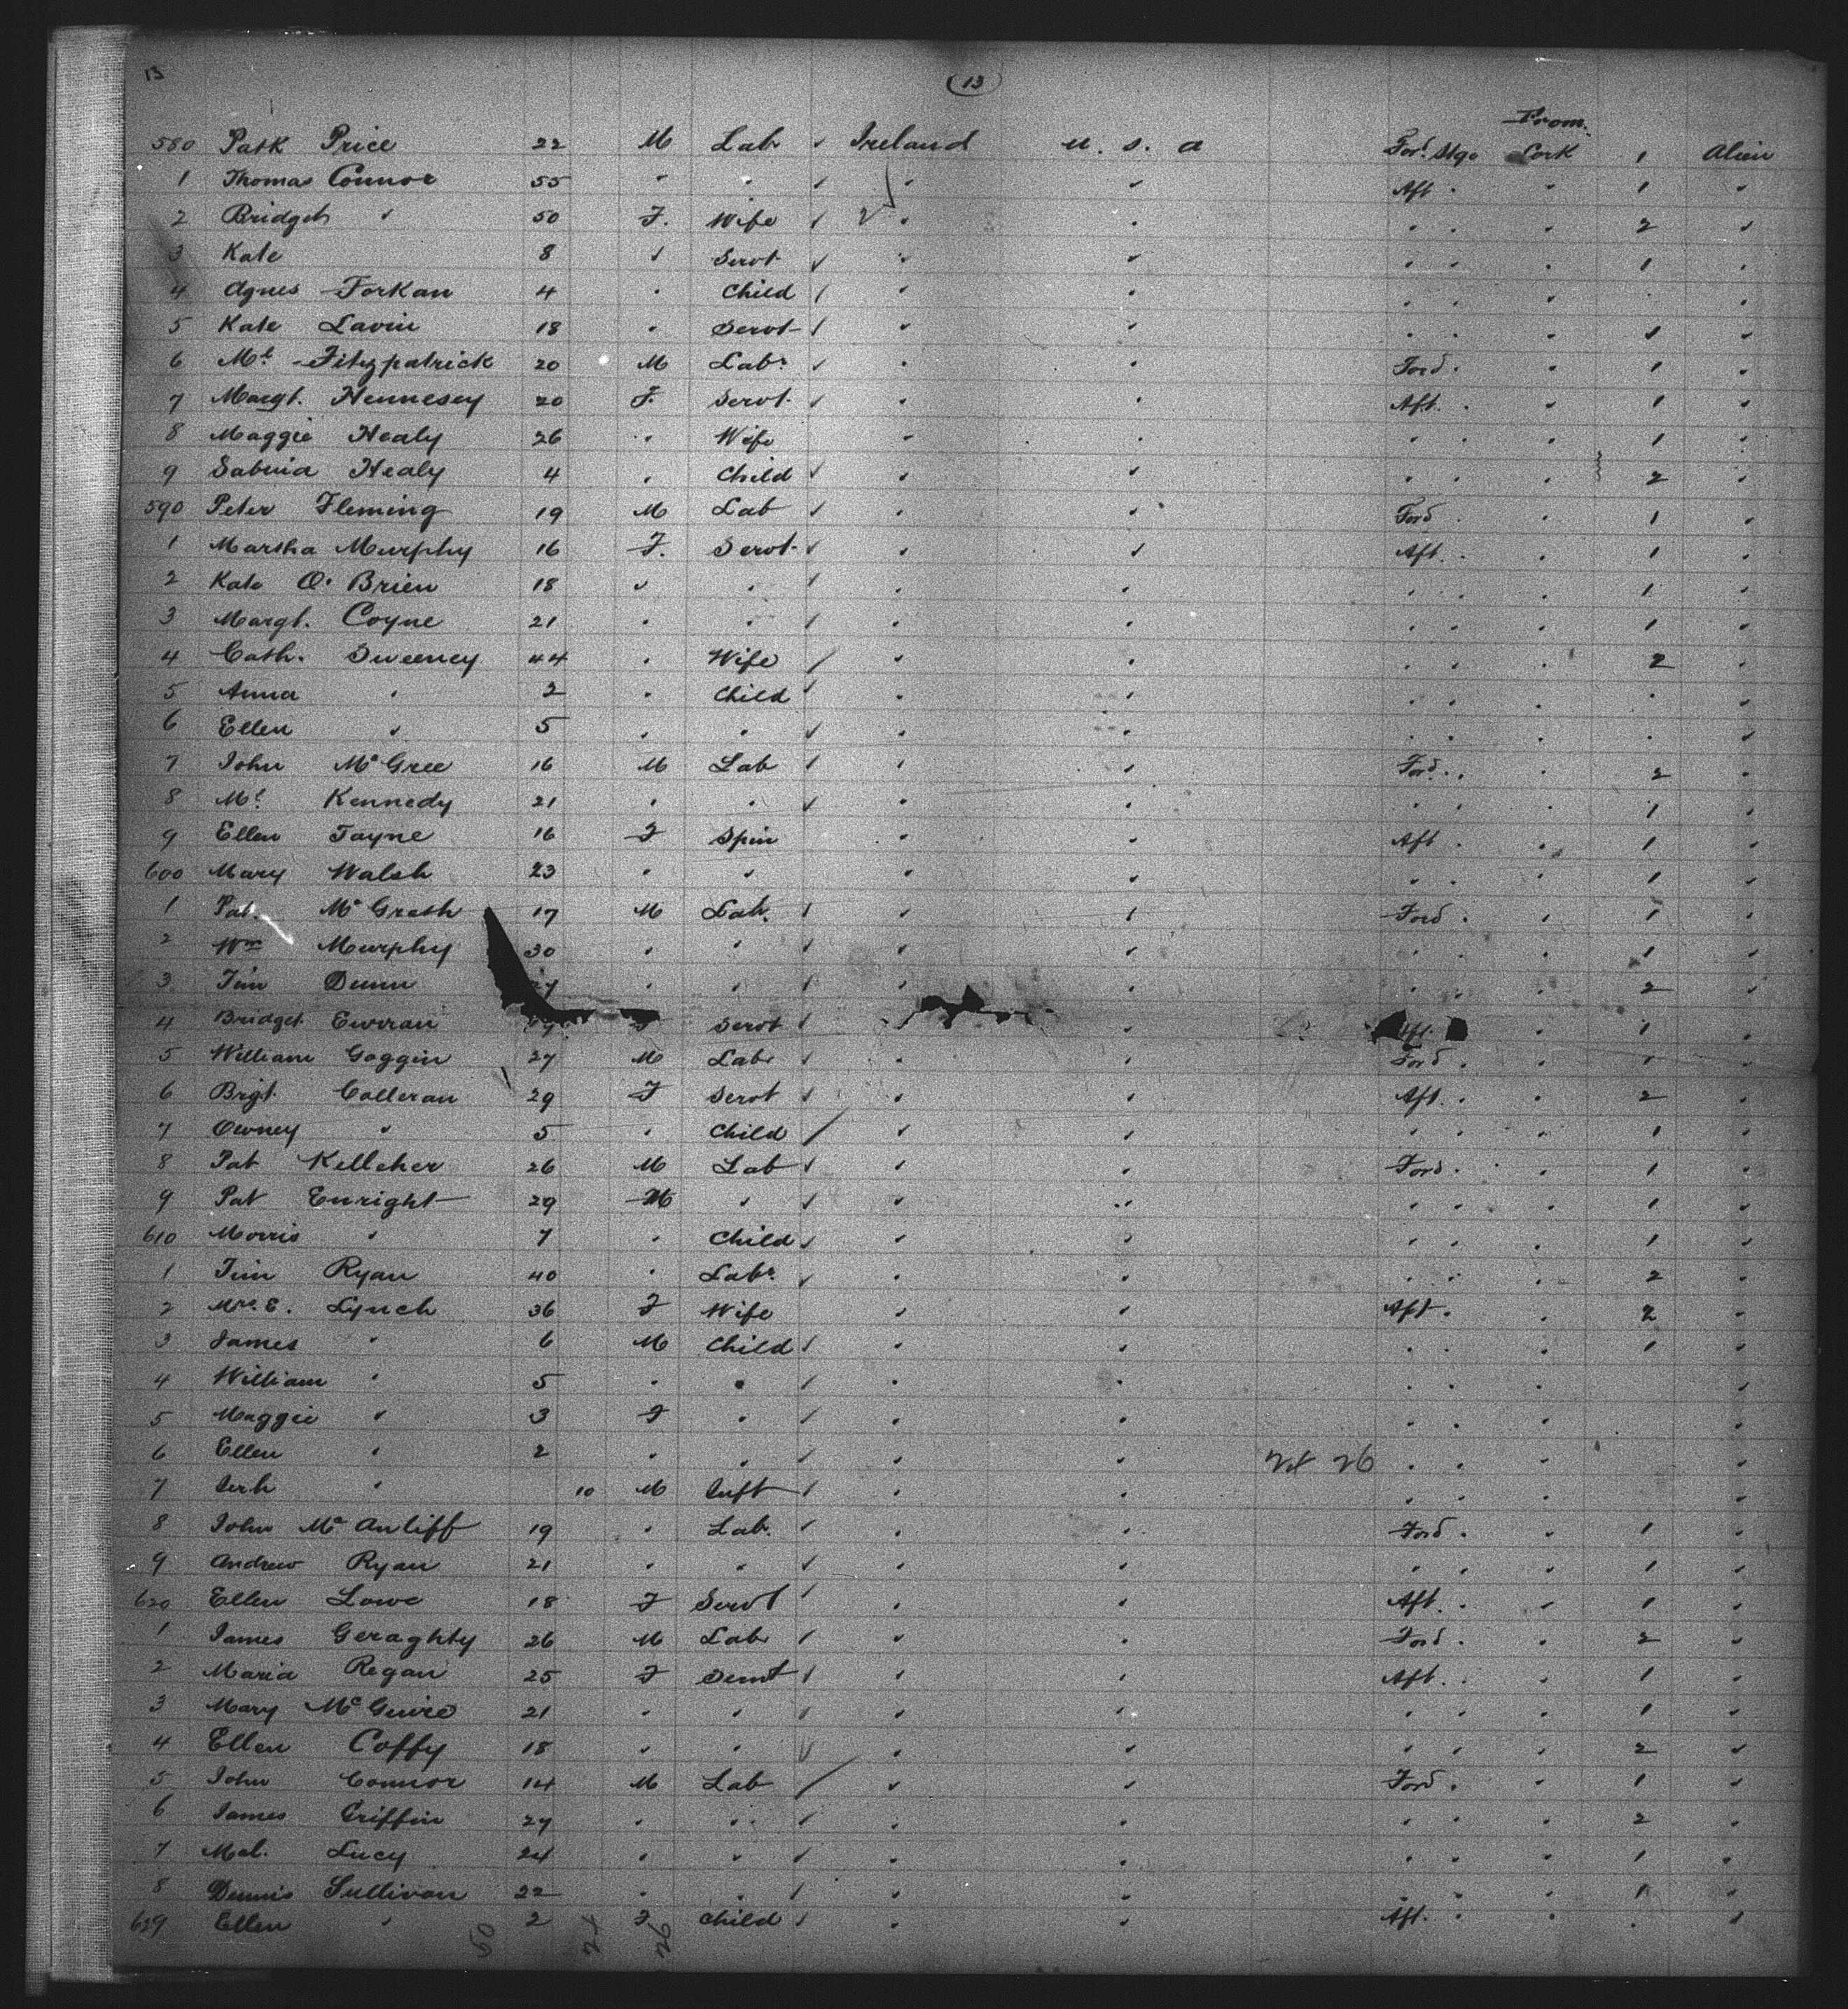 13 (13)
From
580 Patk Price 22 M Lab ✓ Ireland U. S. A Ford Stge Cork 1 Alien
1 Thomas Connor 55 " " ✓ " " Aft " " 1 "
2 Bridget " 50 F. Wife ✓ 2 " " " " " 2 "
3 Kate 8 " Servt ✓ " " " " " 1 "
4 Agnes Forkan 4 " Child ✓ " " " " " "
5 Kate Lavin 18 " Servt ✓ " " " " " 1 "
6 Ml Fitzpatrick 20 M Labr ✓ " " Ford " " 1 "
7 Margt. Hennesey 20 F. Servt ✓ " " Aft. " " 1 "
8 Maggie Healy 26 " Wife " " " " " 1 "
9 Sabina Healy 4 " Child ✓ " " " " " 2 "
590 Peter Fleming 19 M Lab ✓ " " Ford " " 1 "
1 Martha Murphy 16 F. Servt ✓ " " Aft. " " 1 "
2 Kate O'Brien 18 " " ✓ " " " " " 1 "
3 Margt. Coyne 21 " " ✓ " " " " " 1 "
4 Cath. Sweeney 44 " Wife ✓ " " " " " 2 "
5 Anna " 2 " Child ✓ " " " " " " "
6 Ellen " 5 " " ✓ " " " " " " "
7 John McGree 16 M Lab ✓ " " Ford " " 2 "
8 Ml Kennedy 21 " " ✓ " " " " " 1 "
9 Ellen Tayne 16 F Spin " " Aft " " 1 "
600 Mary Walsh 23 " " " " " " " 1 "
1 Pat McGrath 17 M Lab. ✓ " " Ford " " 1 "
2 Wm Murphy 30 " " ✓ " " " " " 1 "
3 Tim Dunn " " ✓ " " " " " 2 "
4 Bridget Curran Servt ✓ " Aft. " 1 "
5 William Goggin 27 M Lab ✓ " " Ford " " 1 "
6 Brgt. Colleran 29 F Servt ✓ " " Aft. " " 2 "
7 Owney " 5 " Child ✓ " " " " " 1 "
8 Pat Kelleher 26 M Lab ✓ " " Ford " " 1 "
9 Pat Enright 29 M " ✓ " " " " " 1 "
610 Morris " 7 " Child ✓ " " " " " 1 "
1 Tim Ryan 40 " Labr ✓ " " " " " 2 "
2 Mrs. E. Lynch 36 F Wife " " Aft " " 2 "
3 James " 6 M Child ✓ " " " " " 1 "
4 William " 5 " " ✓ " " " " "
5 Maggie " 3 F " ✓ " " " " " "
6 Ellen " 2 " " ✓ " " 24 26 " " " "
7 Jerh " 10 M Inft ✓ " " " " " "
8 John McAuliff 19 " Lab. ✓ " " Ford " " 1 "
9 Andrew Ryan 21 " " ✓ " " " " " 1 "
620 Ellen Lowe 18 F Servt ✓ " " Aft. " " 1 "
1 James Geraghty 26 M Lab ✓ " " Ford " " 2 "
2 Maria Regan 25 F Servt ✓ " " Aft. " " 1 "
3 Mary McGuire 21 " " ✓ " " " " " 1 "
4 Ellen Coffy 18 " " ✓ " " " " " 2 "
5 John Connor 14 M Lab ✓ " " Ford " " 1 "
6 James Griffin 27 " " ✓ " " " " " 2 "
7 Mcl. Lucy 24 " " ✓ " " " " " 1 "
8 Dennis Sullivan 22 " " ✓ " " " " " 1 "
629 Ellen " 2 F Child ✓ " " Aft. " " " "
50 24 26